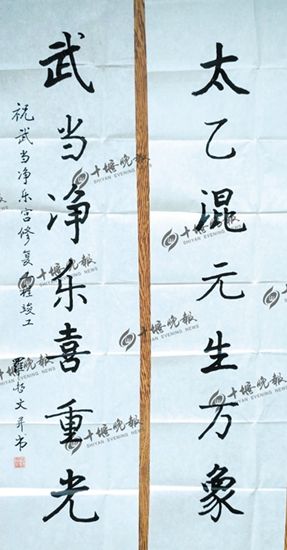 太乙混元生万象
武当净乐喜重光
祝武当净乐宫修复工程竣工
羅哲文并书
十堰晚报
SHIYAN EVENING NEWS
十堰晚报
SHIYAN EVENING NEWS
十堰晚报
SHIYAN EVENING NEWS
十堰晚报
SHIYAN EVENING NEWS
十堰晚报
SHIYAN EVENING NEWS